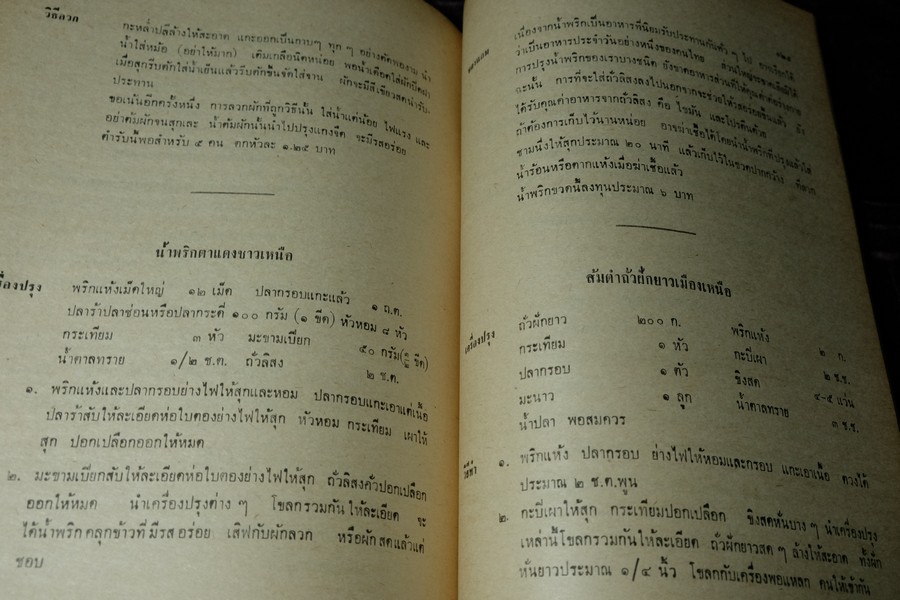 วิธีลวก
กะหล่ำปลีล้างให้สะอาด แกะออกเป็นกาบๆ ทุก ๆ อย่างตัดพองาม นำ
น้ำใส่หม้อ (อย่าให้มาก) เติมเกลือนิดหน่อย พอน้ำเดือดใส่ผักปิดฝา
เมื่อสุกรีบตักใส่น้ำเย็นแล้วรีบตักขึ้นจัดใส่จาน ผักจะมีสีเขียวสดน่ารับ-
ประทาน
ขอเน้นอีกครั้งหนึ่ง การลวกผักที่ถูกวิธีนั้น ใส่น้ำแต่น้อย ไฟแรง และ
อย่าต้มผักจนสุกเละ น้ำต้มผักนั้นนำไปปรุงแกงจืด จะมีรสอร่อย
ตำรับนี้พอสำหรับ ๕ คน ตกหัวละ ๑.๒๕ บาท
น้ำพริกตาแดงชาวเหนือ
เครื่องปรุง พริกแห้งเม็ดใหญ่ ๑๒ เม็ด ปลากรอบแกะแล้ว ๑ ถ.ต.
ปลาร้าปลาช่อนหรือปลากระดี่ ๑๐๐ กรัม (๑ ขีด) หัวหอม ๘ หัว
กระเทียม ๓ หัว มะขามเปียก ๕๐ กรัม(½ ขีด)
น้ำตาลทราย ๑/๒ ช.ต. ถั่วลิสง ๒ ช.ต.
๑. พริกแห้งและปลากรอบย่างไฟให้สุกและหอม ปลากรอบแกะเอาแต่เนื้อ
ปลาร้าสับให้ละเอียดห่อใบตองย่างไฟให้สุก หัวหอม กระเทียม เผาให้
สุก ปอกเปลือกออกให้หมด
๒. มะขามเปียกสับให้ละเอียดห่อใบตองย่างไฟให้สุก ถั่วลิสงคั่วปอกเปลือก
ออกให้หมด นำเครื่องปรุงต่าง ๆ โขลกรวมกันให้ละเอียด จะ
ได้น้ำพริกคลุกข้าวที่มีรสอร่อย เสิฟกับผักลวก หรือผักสดแล้วแต่
ชอบ
เนื่องจากน้ำพริกเป็นอาหารที่นิยมรับประทานกันทั่ว ๆ ไป อาจเรียกได้
ว่าเป็นอาหารประจำวันอย่างหนึ่งของคนไทย ส่วนใหญ่
การปรุงน้ำพริกของเราบางชนิด ยังขาดอาหารส่วนที่ให้คุณค่าต่อร่างกาย
ฉะนั้น การที่จะใส่ถั่วลิสงลงไปนอกจากจะช่วยให้รสอร่อยขึ้นแล้ว ยัง
ได้รับคุณค่าอาหารจากถั่วลิสง คือ ไขมัน และโปรตีนด้วย
ถ้าต้องการเก็บไว้นานหน่อย อาจฆ่าเชื้อได้โดยนำน้ำพริกที่ปรุงแล้วใส่
ชามนึ่งให้สุกประมาณ ๒๐ นาที แล้วเก็บไว้ในขวดปากกว้าง ที่ลวก
น้ำร้อนหรือตากแห้งเมื่อฆ่าเชื้อแล้ว
น้ำพริกขวดนี้ลงทุนประมาณ ๖ บาท
ส้มตำถั่วฝักยาวเมืองเหนือ
เครื่องปรุง ถั่วฝักยาว ๒๐๐ ก. พริกแห้ง ๑ ก.
กระเทียม ๑ หัว กะปิเผา ๒ ช.ช.
ปลากรอบ ๑ ตัว ขิงสด ๔-๕ แว่น
มะนาว ๑ ลูก น้ำตาลทราย ๓ ช.ช.
น้ำปลา พอสมควร
วิธีทำ ๑. พริกแห้ง ปลากรอบ ย่างไฟให้หอมและกรอบ แกะเอาเนื้อ ตวงได้
ประมาณ ๒ ช.ต.พูน
๒. กะปิเผาให้สุก กระเทียมปอกเปลือก ขิงสดหั่นบาง ๆ นำเครื่องปรุง
เหล่านี้โขลกรวมกันให้ละเอียด ถั่วฝักยาวสด ๆ ล้างให้สะอาด ทั้งฝัก
หั่นยาวประมาณ ๑/๔ นิ้ว โขลกกับเครื่องพอแหลก คนให้เข้ากัน